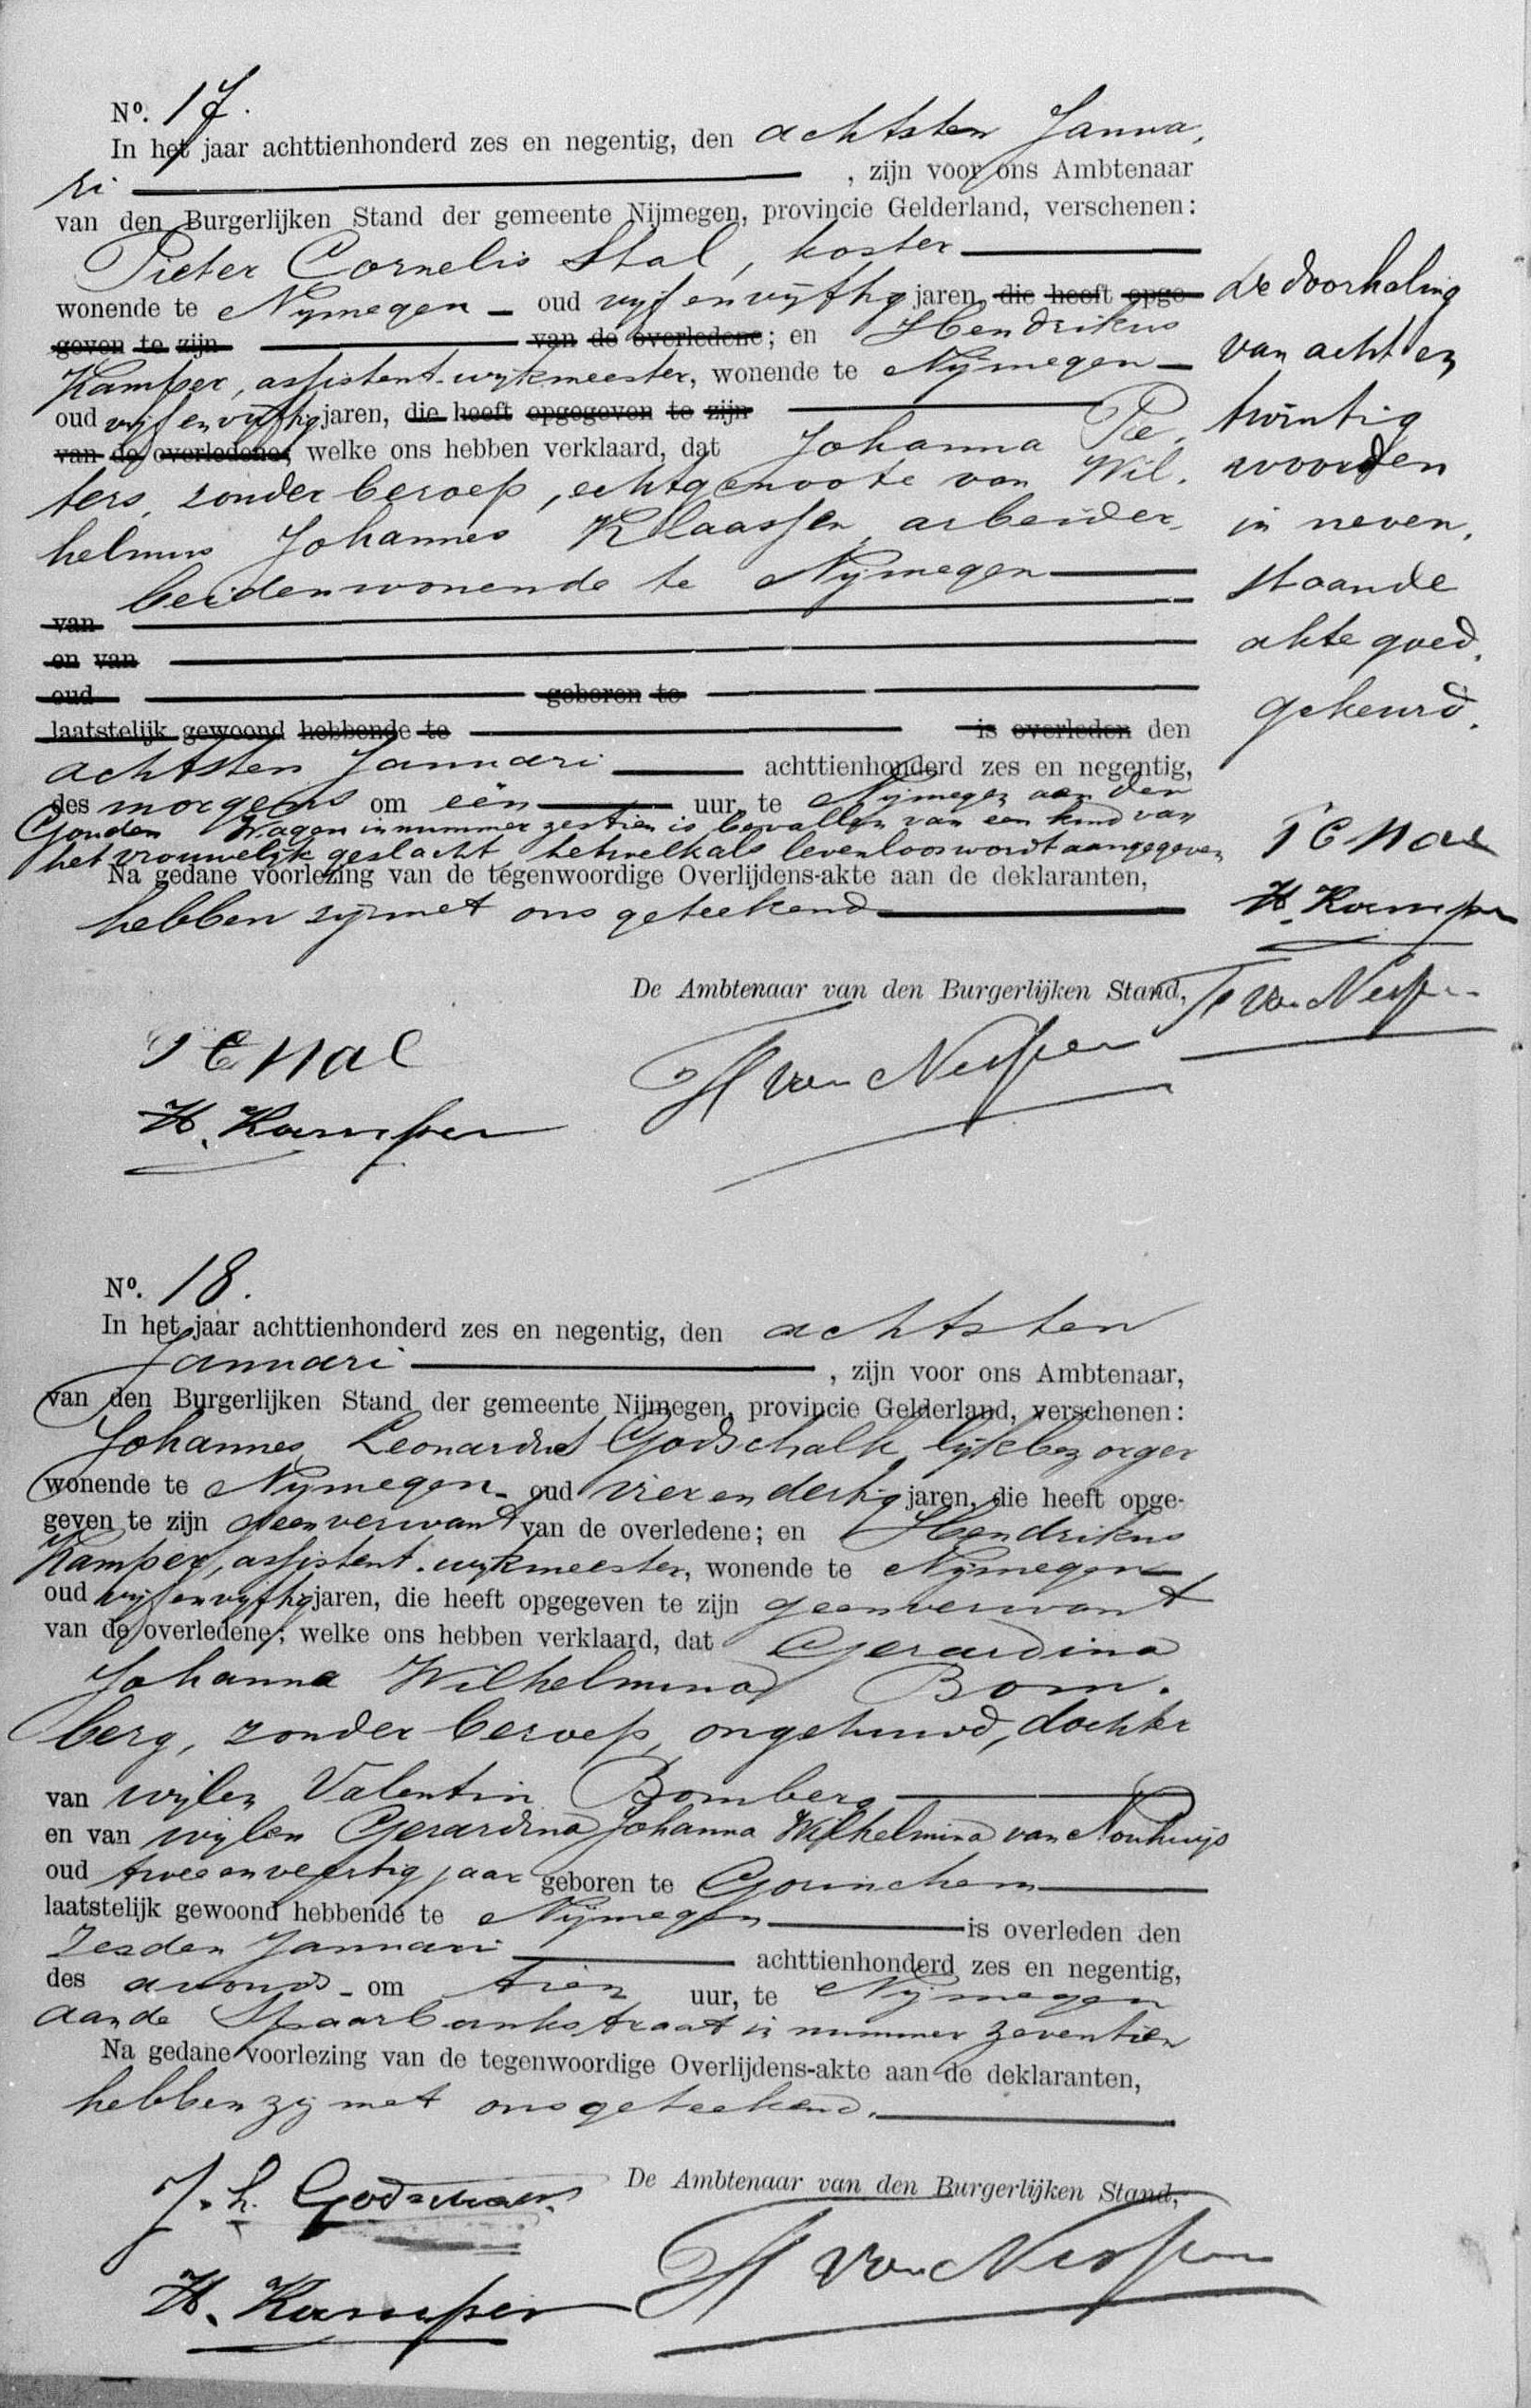 Nº. 17.
In het jaar achttienhonderd zes en negentig, den achtsten Janua-
ri , zijn voor ons Ambtenaar
van den Burgerlijken Stand der gemeente Nijmegen, provincie Gelderland, verschenen:
Pieter Cornelis Stal, koster
wonende te Nijmegen - oud vijf en vijftig jaren, die heeft opge-
geven te zijn van de overledene; en Hendrikus
Kamper, assistent-wijkmeester, wonende te Nijmegen
oud vijf en vijftig jaren, die heeft opgegeven te zijn
van de overledene; welke ons hebben verklaard, dat Johanna Pe-
ters, zonder beroep, echtgenoote van Wil-
helmus Johannes Klaassen, arbeider,
beiden wonende te Nijmegen
van
en van
oud geboren te
laatstelijk gewoond hebbende te is overleden den
achtsten Januari achttienhonderd zes en negentig,
des morgens om een uur, te Nijmegen aan den
Gouden Wagen in nummer zestien is bevallen van een kind van
het vrouwelijk geslacht, hetwelk als levenloos wordt aangegeven
Na gedane voorlezing van de tegenwoordige Overlijdens-akte aan de deklaranten,
hebben zij met ons geteekend
De doorhaling
van acht en
twintig
woorden
in neven-
staande
akte goed-
gekeurd.
P C Stal
H. Kamper
De Ambtenaar van den Burgerlijken Stand,
P C Stal
H. Kamper
Nº. 18.
In het jaar achttienhonderd zes en negentig, den achtsten
Januari , zijn voor ons Ambtenaar,
van den Burgerlijken Stand der gemeente Nijmegen, provincie Gelderland, verschenen:
Johannes Leonardus Godschalk, lijkbezorger
wonende te Nijmegen - oud vier en dertig jaren, die heeft opge-
geven te zijn geen verwant van de overledene; en Hendrikus
Kamper, assistent-wijkmeester, wonende te Nijmegen
oud vijf en vijftig jaren, die heeft opgegeven te zijn geen verwant
van de overledene; welke ons hebben verklaard, dat Gerardina
Johanna Wilhelmina Bom-
berg, zonder beroep, ongehuwd, dochter
van wijlen Valentin Bomberg
en van wijlen Gerardina Johanna Wilhelmina van Nouhuijs
oud twee en veertig jaar geboren te Gorinchem
laatstelijk gewoond hebbende te Nijmegen is overleden den
Zesden Januari achttienhonderd zes en negentig,
des avonds - om tien uur, te Nijmegen
aan de Spaarbankstraat in nummer zeventien
Na gedane voorlezing van de tegenwoordige Overlijdens-akte aan de deklaranten,
hebben zij met ons geteekend.
De Ambtenaar van den Burgerlijken Stand,
J. L. Godschalk
H. Kamper